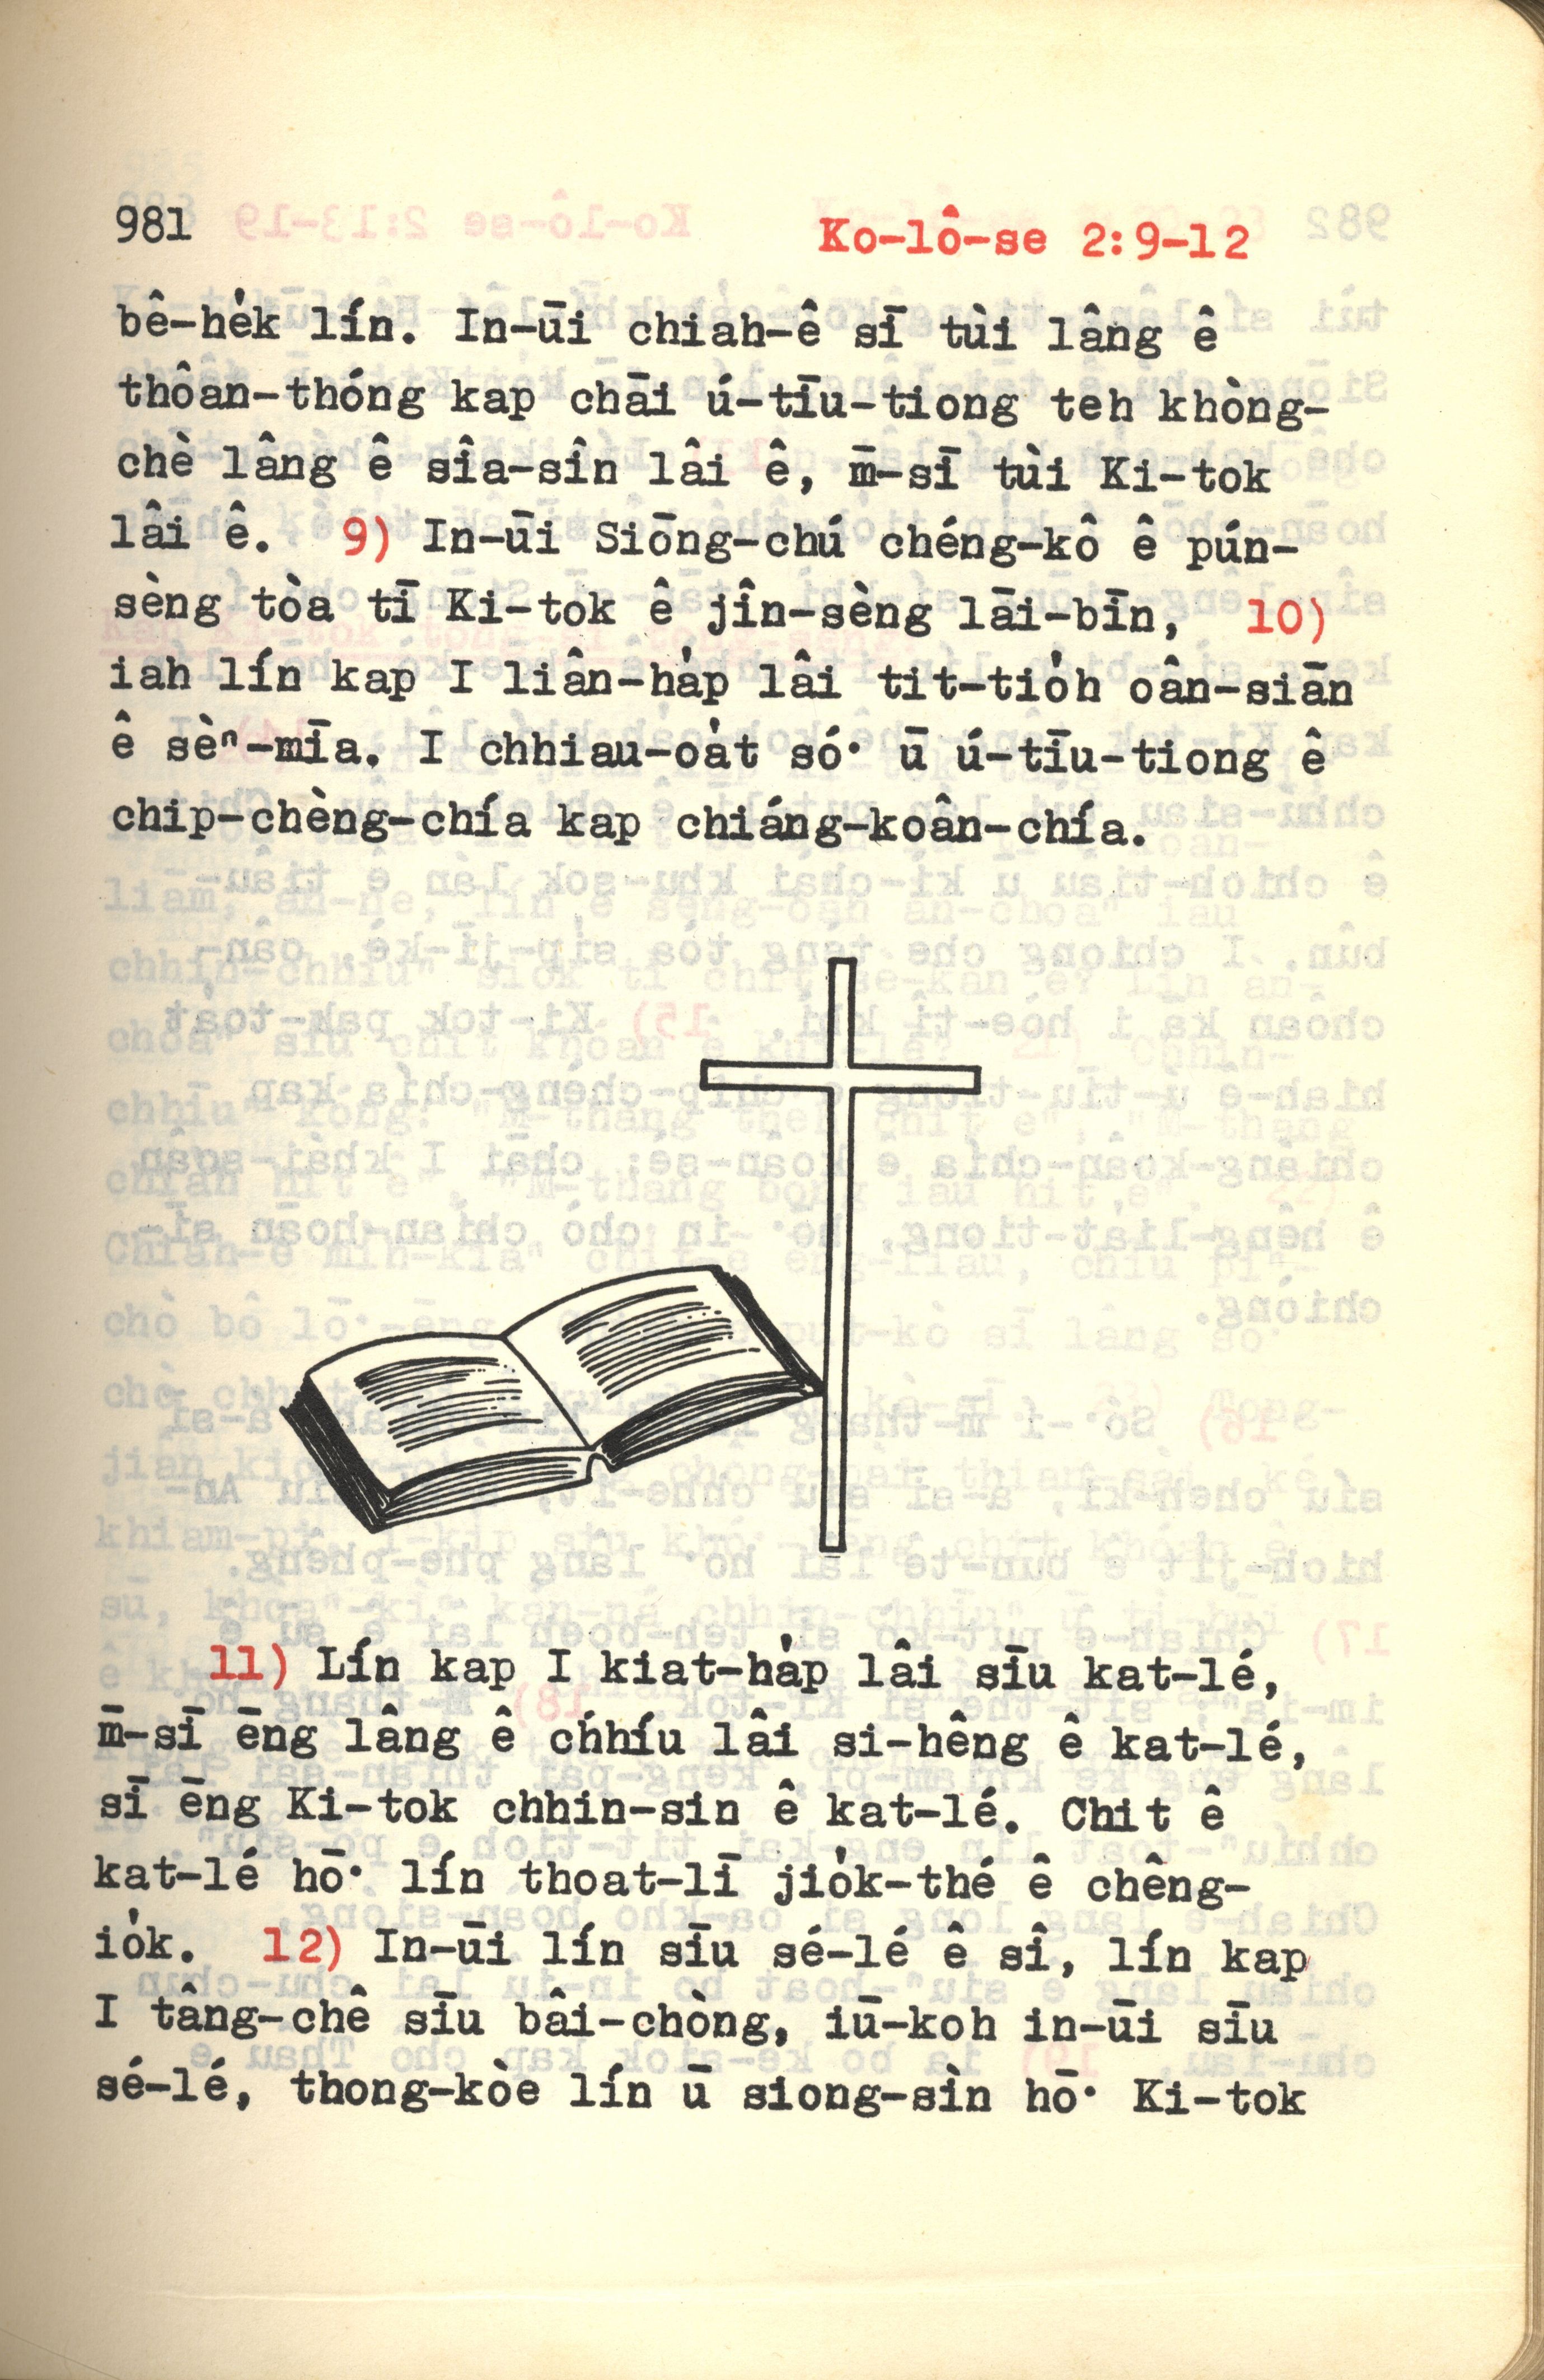 981 Ko-lô-se 2:9-12
bê-he̍k lín. In-ūi chiah-ê sī tùi lâng ê
thôan-thóng kap chāi ú-tīu-tiong teh khòng-
chè lâng ê sîa-sîn lâi ê, m̄-sī tùi Ki-tok
lâi ê. 9) In-ūi Siōng-chú chéng-kô ê pún-
sèng tòa tī Ki-tok ê jîn-sèng lāi-bīn, 10)
iah lín kap I liân-ha̍p lâi tit-tio̍h oân-siān
ê sèⁿ-mīa. I chhiau-oa̍t só͘ ū ú-tīu-tiong ê
chip-chèng-chía kap chiáng-koân-chía.
11) Lín kap I kiat-ha̍p lâi sīu kat-lé,
m̄-sī ēng lâng ê chhíu lâi si-hêng ê kat-lé,
sī ēng Ki-tok chhin-sin ê kat-lé. Chit ê
kat-lé hō͘ lín thoat-lī jio̍k-thé ê chêng-
io̍k. 12) In-ūi lín sīu sé-lé ê sî, lín kap
I tâng-chê sīu bâi-chòng, iū-koh in-ūi sīu
sé-lé, thong-kòe lín ū siong-sìn hō͘ Ki-tok